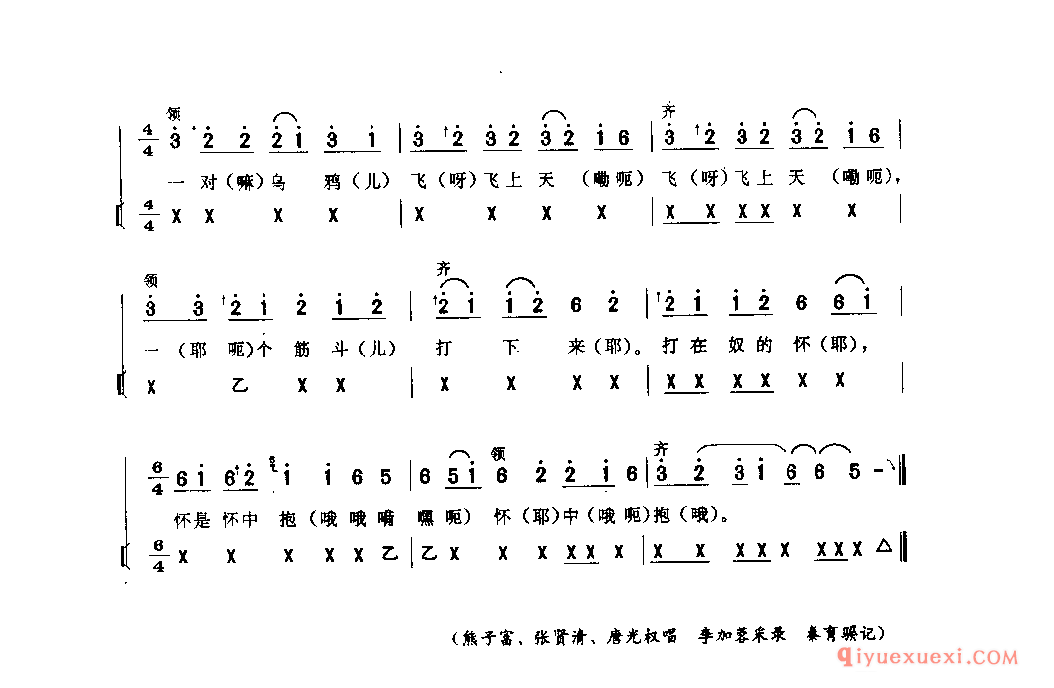 领 齐
4/4 3 2 2 2 1 3 1 | 3 2 3 2 3 2 1 6 | 3 2 3 2 3 2 1 6 |
一 对(嘛)乌 鸦(儿) 飞(呀)飞上天 (嘞呃) 飞(呀)飞上天 (嘞呃),
4/4 X X X X | X X X X | X X X X X X |
领 齐
3 3 2 1 2 1 2 | 2 1 1 2 6 2 | 2 1 1 2 6 6 1 |
一 (耶 呃)个 筋 斗(儿) 打 下 来(耶)。打在奴的怀(耶),
X 乙 X X | X X X X | X X X X X X |
领 齐
6/4 6 1 6 2 1 1 6 5 | 6 5 1 6 2 2 1 6 | 3 2 3 1 6 6 5 - ‖
怀是怀中抱(哦哦嗬嘿呃) 怀(耶)中(哦呃)抱(哦)。
6/4 X X X X X 乙 | 乙 X X X X X | X X X X X X X △ ‖
(熊子富、张贤清、唐光权唱 李加蓉采录 秦育骙记)
qiyuexuexi.COM